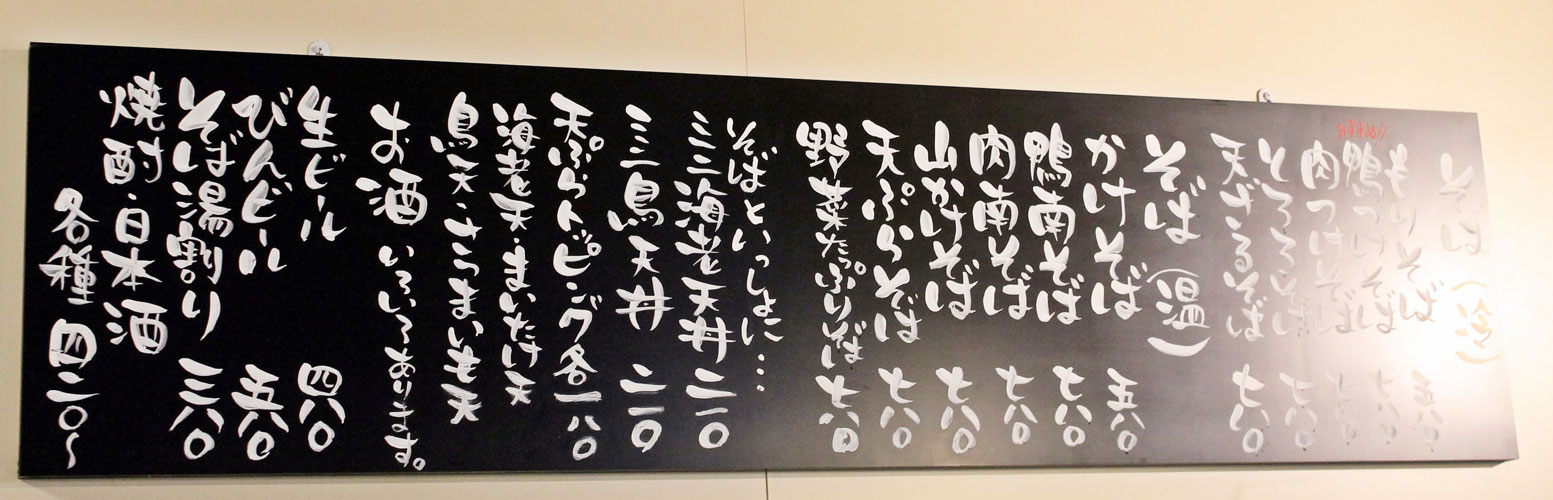 そば（冷）
もりそば 五八〇
おすすめ!!
鴨つけそば 七八〇
肉つけそば 七八〇
とろろそば 七八〇
天ざるそば 七八〇
そば（温）
かけそば 五八〇
鴨南そば 七八〇
肉南そば 七八〇
山かけそば 七八〇
天ぷらそば 七八〇
野菜たっぷりそば 七八〇
そばといっしょに・・・・
ミニ海老天丼 二一〇
ミニ鳥天丼 二一〇
天ぷらトッピング各一八〇
海老天・まいたけ天
鳥天・さつまいも天
お酒 いろいろあります。
生ビール 四八〇
びんビール 五八〇
そば湯割り 三八〇
焼酎・日本酒
各種 四二〇〜